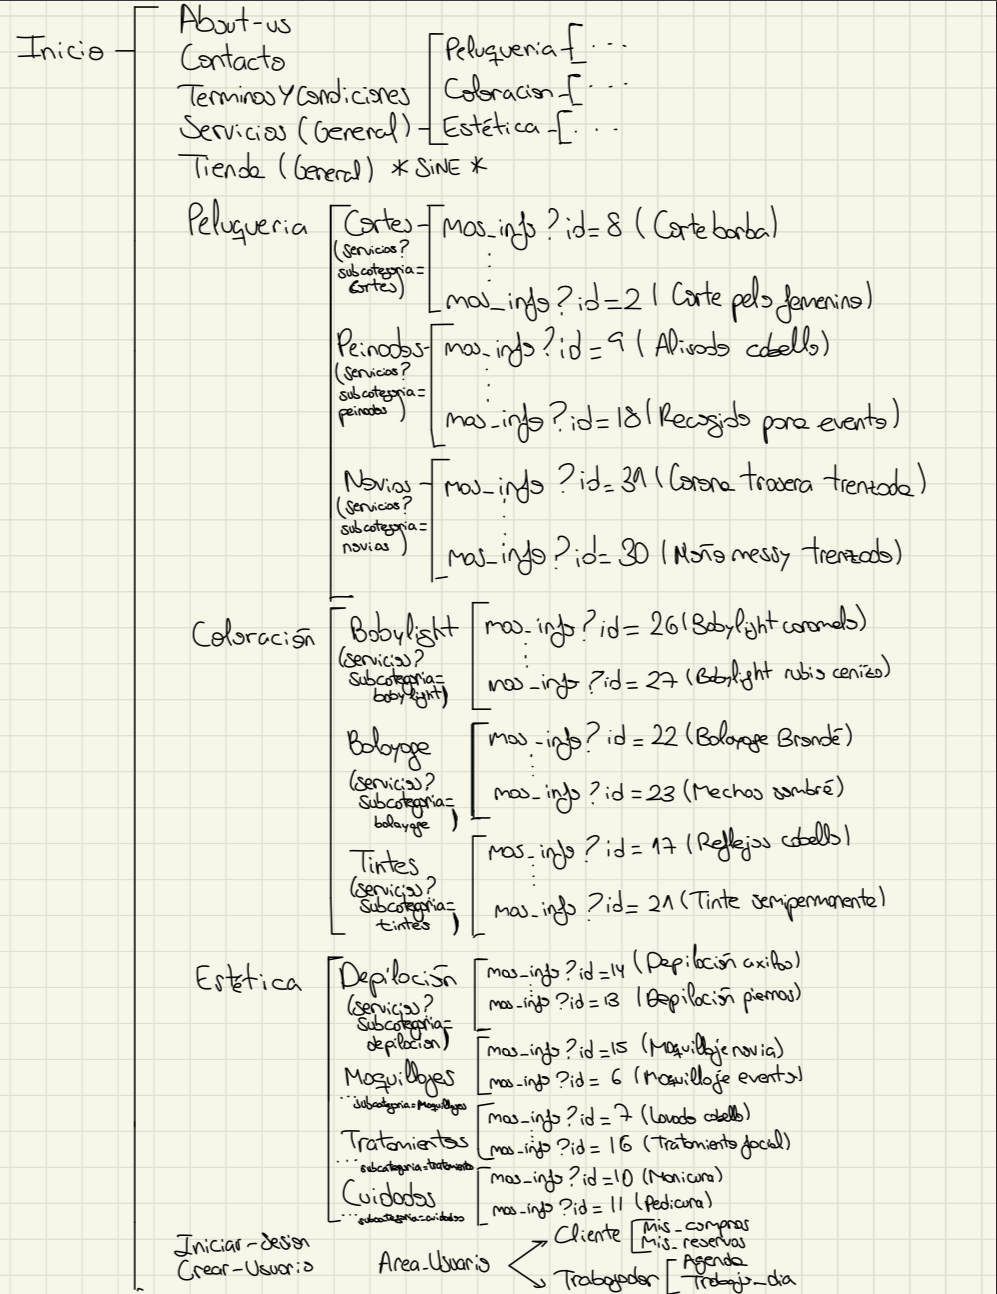 Inicio
About-us
Contacto
Terminos Y Condiciones
Servicios (General)
Peluqueria ...
Coloracion ...
Estética ...
Tienda (General) * SiNE *
Peluqueria
Cortes
(servicios?
subcategoria=
cortes)
mas_info?id=8 (Corte barba)
mas_info?id=2 (Corte pelo femenino)
Peinados
(servicios?
subcategoria=
peinados)
mas_info?id=9 (Alisado cabello)
mas_info?id=18 (Recogido para evento)
Novias
(servicios?
subcategoria=
novias)
mas_info?id=31 (Corona trasera trenzada)
mas_info?id=30 (Moño messy trenzado)
Coloración
Babylight
(servicios?
subcategoria=
babylight)
mas_info?id=26 (Babylight caramelo)
mas_info?id=27 (Babylight rubio cenizo)
Balayage
(servicios?
subcategoria=
balayage)
mas_info?id=22 (Balayage Brondé)
mas_info?id=23 (Mechas sombré)
Tintes
(servicios?
subcategoria=
tintes)
mas_info?id=17 (Reflejos cabello)
mas_info?id=21 (Tinte semipermanente)
Estética
Depilación
(servicios?
subcategoria=
depilacion)
mas_info?id=14 (Depilación axilas)
mas_info?id=13 (Depilación piernas)
Maquillajes
... subcategoria=Maquillajes
mas_info?id=15 (Maquillaje novia)
mas_info?id=6 (Maquillaje evento)
Tratamientos
... subcategoria=tratamiento
mas_info?id=7 (Lavado cabello)
mas_info?id=16 (Tratamiento facial)
Cuidados
... subcategoria=cuidados
mas_info?id=10 (Manicura)
mas_info?id=11 (Pedicura)
Iniciar-sesion
Crear-Usuario
Area-Usuario
Cliente
Mis_compras
Mis_reservas
Trabajador
Agenda
Trabajo_dia